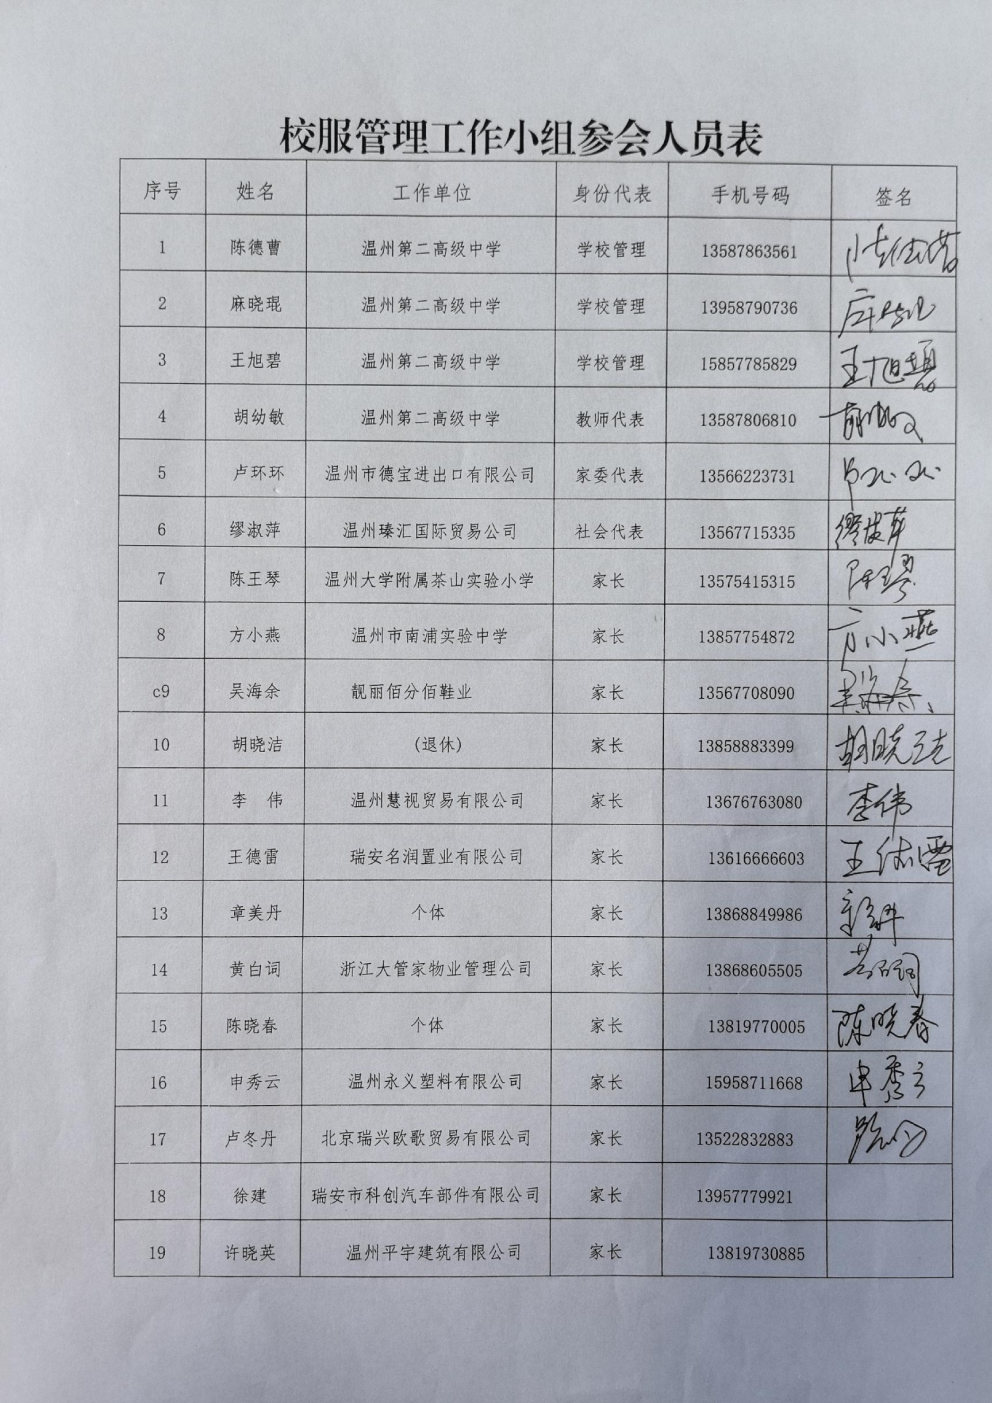 校服管理工作小组参会人员表
序号 姓名 工作单位 身份代表 手机号码 签名
1 陈德曹 温州第二高级中学 学校管理 13587863561 陈德曹
2 麻晓琨 温州第二高级中学 学校管理 13958790736 麻晓琨
3 王旭碧 温州第二高级中学 学校管理 15857785829 王旭碧
4 胡幼敏 温州第二高级中学 教师代表 13587806810 胡幼敏
5 卢环环 温州市德宝进出口有限公司 家委代表 13566223731 卢环环
6 缪淑萍 温州瑧汇国际贸易公司 社会代表 13567715335 缪淑萍
7 陈王琴 温州大学附属茶山实验小学 家长 13575415315 陈王琴
8 方小燕 温州市南浦实验中学 家长 13857754872 方小燕
c9 吴海余 靓丽佰分佰鞋业 家长 13567708090 吴海余
10 胡晓洁 (退休) 家长 13858883399 胡晓洁
11 李 伟 温州慧视贸易有限公司 家长 13676763080 李伟
12 王德雷 瑞安名润置业有限公司 家长 13616666603 王德雷
13 章美丹 个体 家长 13868849986 章美丹
14 黄白词 浙江大管家物业管理公司 家长 13868605505 黄白词
15 陈晓春 个体 家长 13819770005 陈晓春
16 申秀云 温州永义塑料有限公司 家长 15958711668 申秀云
17 卢冬丹 北京瑞兴欧歌贸易有限公司 家长 13522832883
18 徐建 瑞安市科创汽车部件有限公司 家长 13957779921
19 许晓英 温州平宇建筑有限公司 家长 13819730885